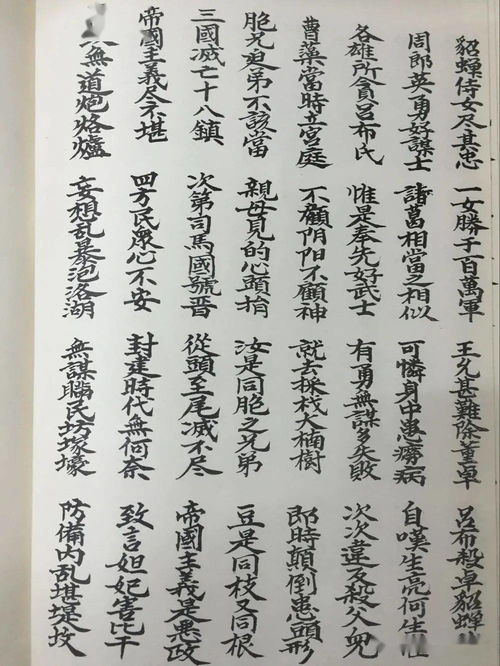 貂蟬侍女尽其忠 一女勝于百萬軍 王允甚難除董卓 呂布殺卓貂蟬
周郎英勇好謀士 諸葛相當之相似 可憐身中患癆病 自嘆生亮何生
各雄所貪呂布氏 惟是奉先好武士 有勇無謀多失敗 次次違反殺父
曹藥當時立宮庭 不顧阴阳不顧神 就去採栈大楠樹 即時顛倒患頭形
胞兄弟不該當 親母見的心頭捎 汝是同胞之兄弟 豆是同枝又同根
三國滅亡十八鎮 次第司馬國號晋 從頭至尾滅不尽 帝國主義是悪政
帝國主義尽不堪 四方民衆心不安 封建時代無何奈 致言妲妃害比干
無道炮烙爐 妄想乱暴泡洛湖 無謀聯民坊塚壕 防備内乱堪堤坟